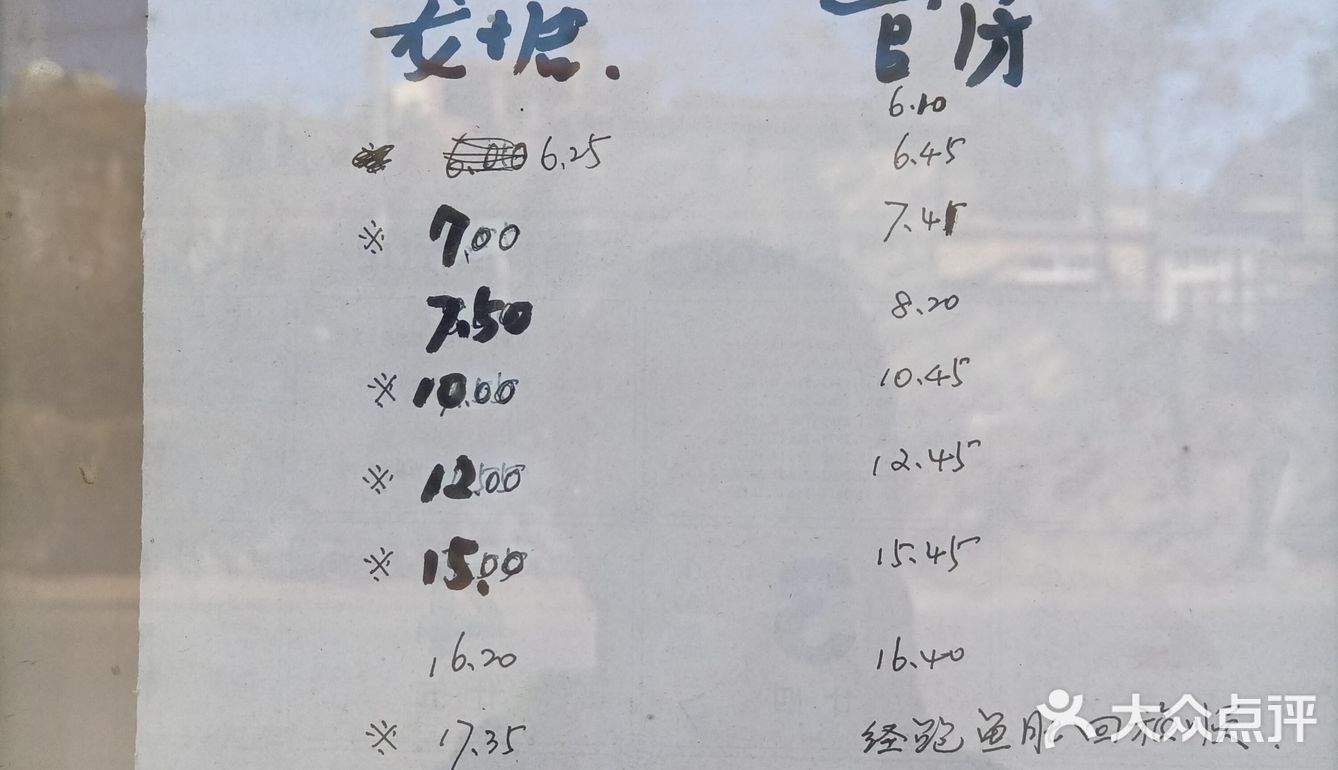 龙塘.
6.10
6.25 6.45
※ 7.00 7.45
7.50 8.20
※ 10.00 10.45
※ 12.00 12.45
※ 15.00 15.45
16.20 16.40
※ 17.35 经鲍鱼
大众点评